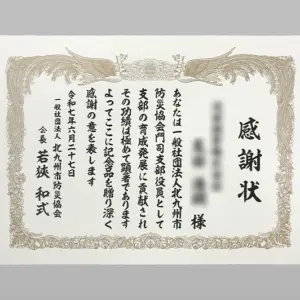 感謝状
様
あなたは一般社団法人北九州市
防災協会門司支部役員として
支部の育成発展に貢献され
その功績は極めて顕著であります
よってここに記念品を贈り深く
感謝の意を表します
令和七年六月二十七日
一般社団法人 北九州市防災協会
会長 若狹和式